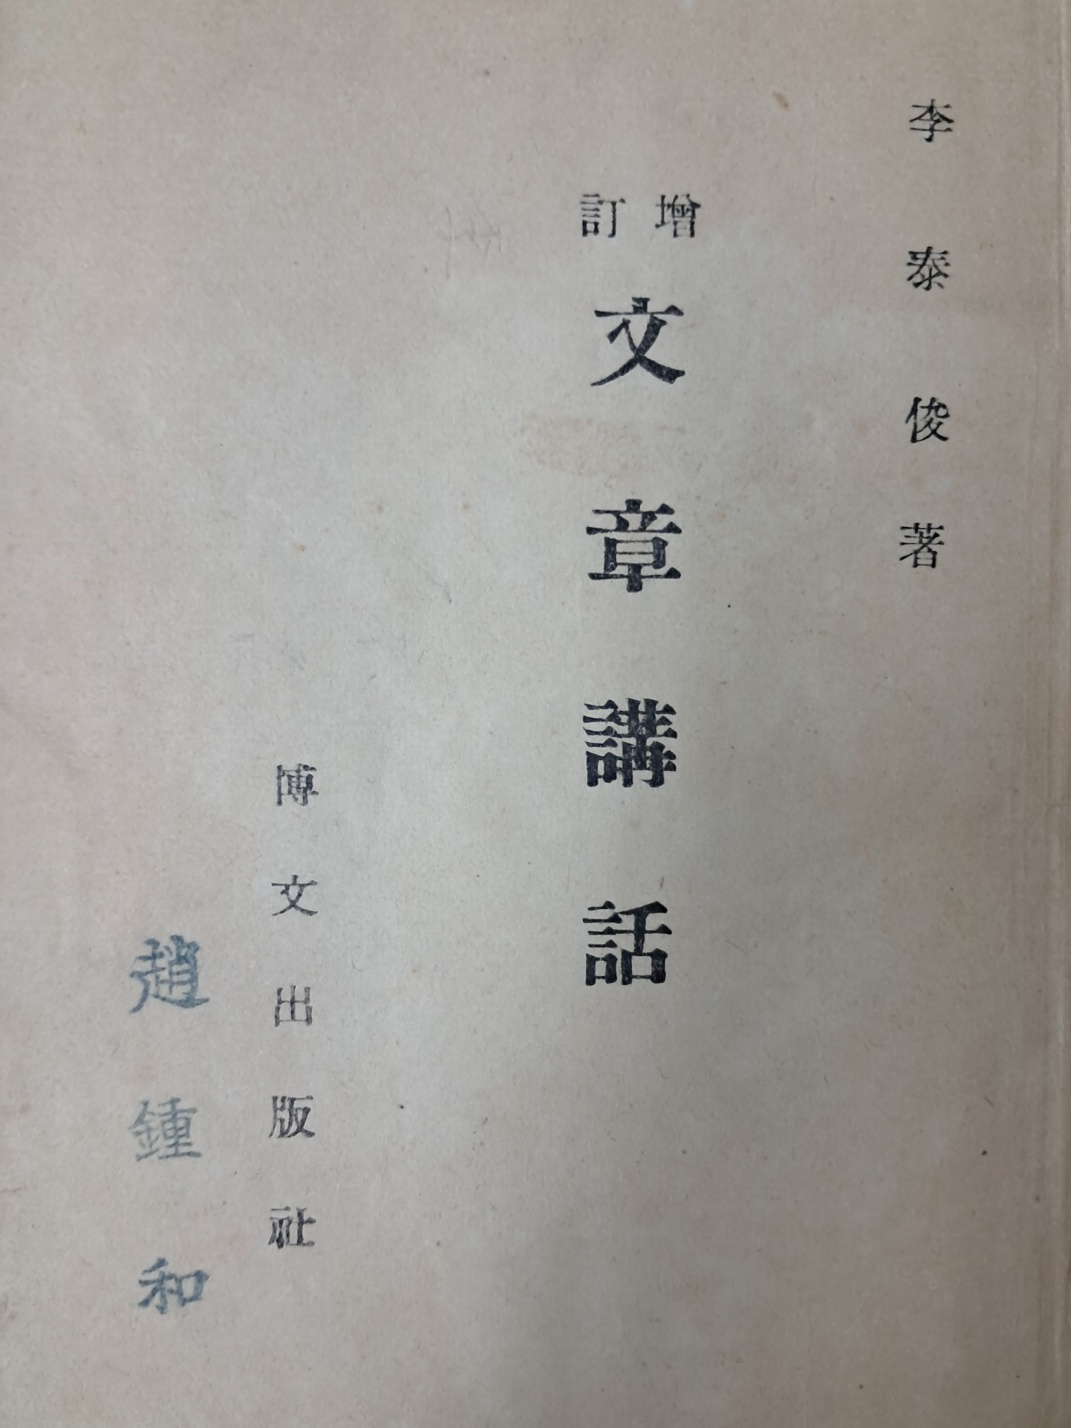 李泰俊著
增訂
文章講話
博文出版社
趙鍾和